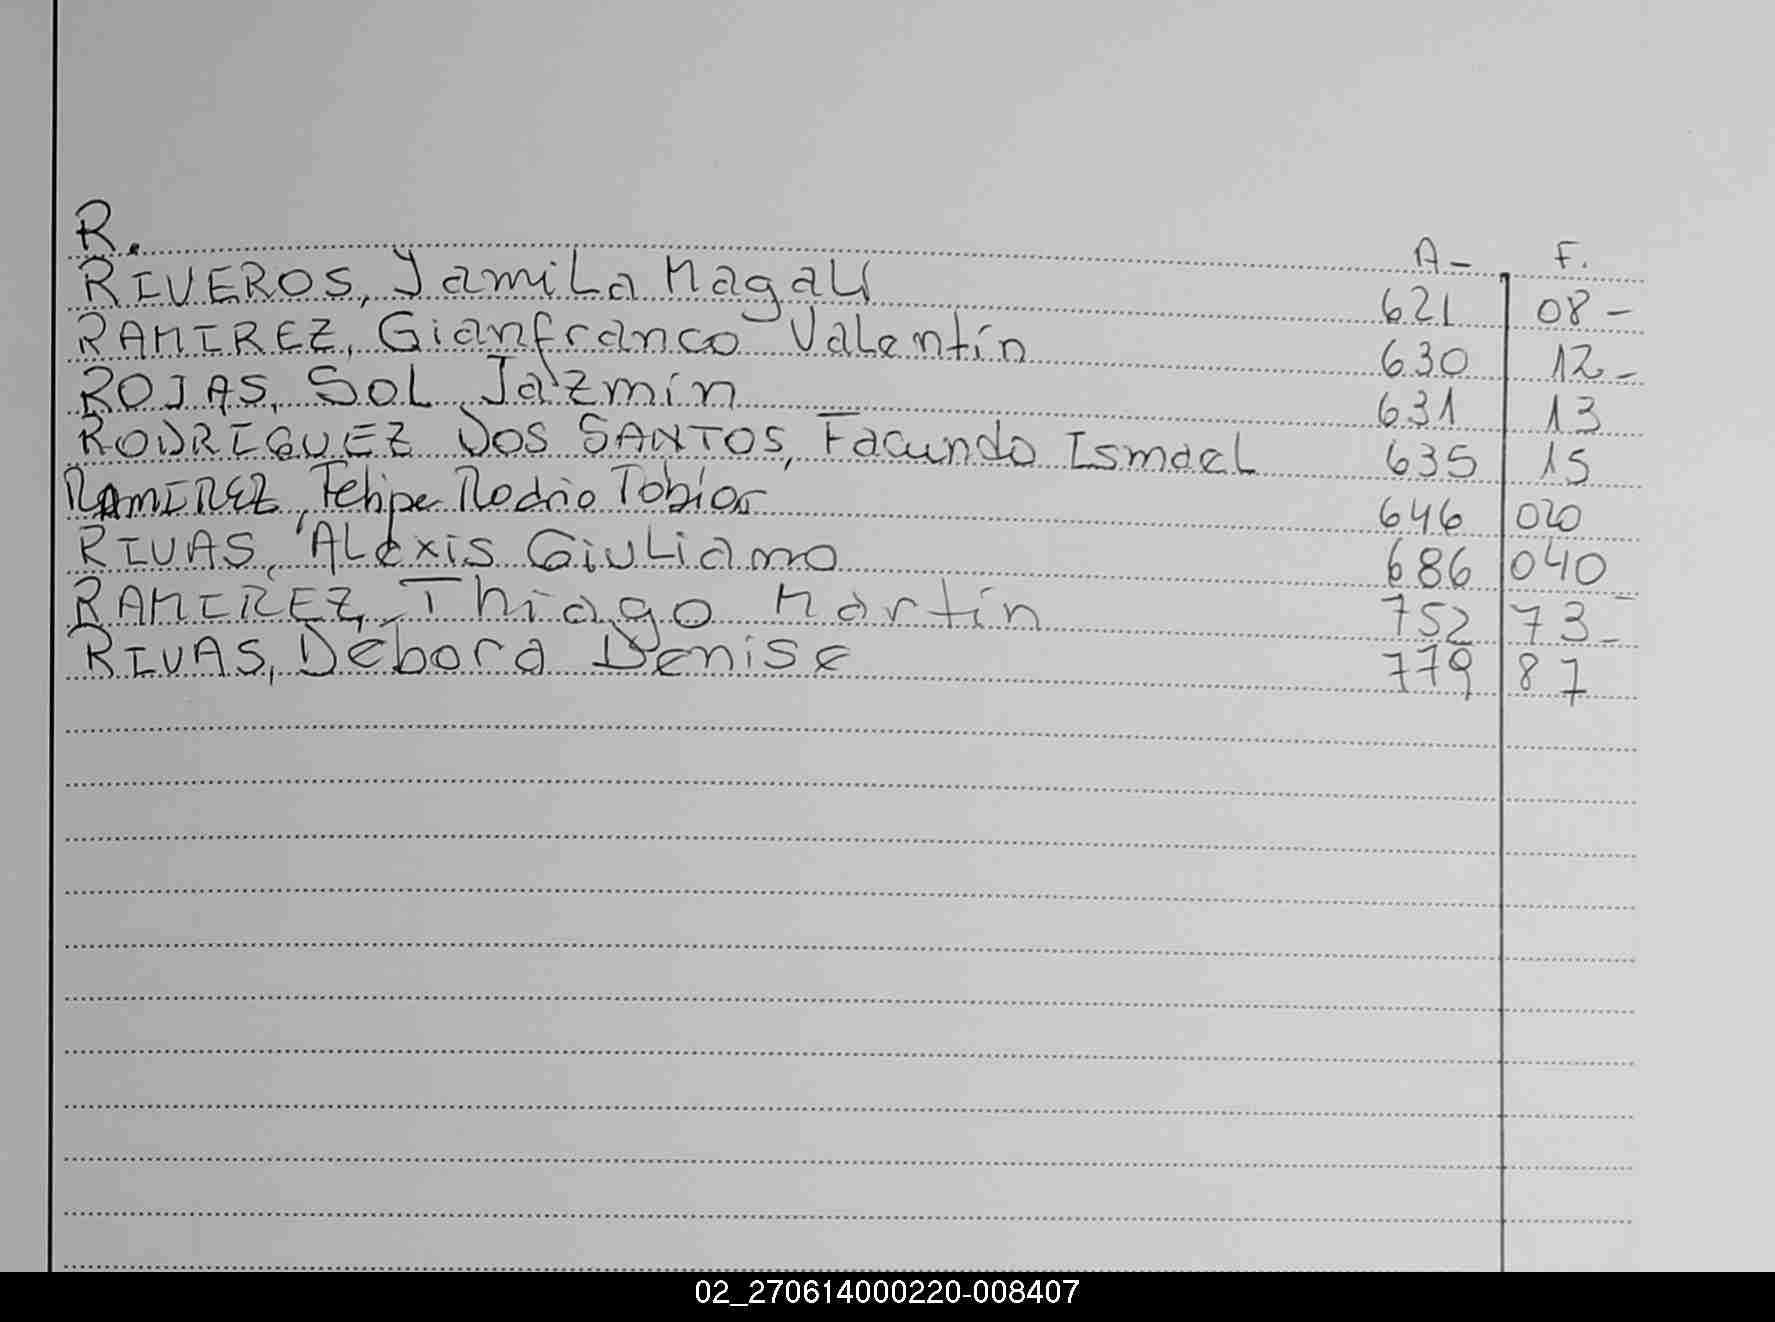 R. A- F.
RIVEROS, Yamila Magalí 621 08-
RAMIREZ, Gianfranco Valentín 630 12-
ROJAS, Sol Jazmín 631 13
RODRIGUEZ DOS SANTOS, Facundo Ismael 635 15
RAMIREZ, Felipe Tobias 646 020
RIVAS, Alexis Giuliano 686 040
RAMIREZ, Thiago Martín 752 73-
RIVAS, Débora Denise 779 87
02_270614000220-008407